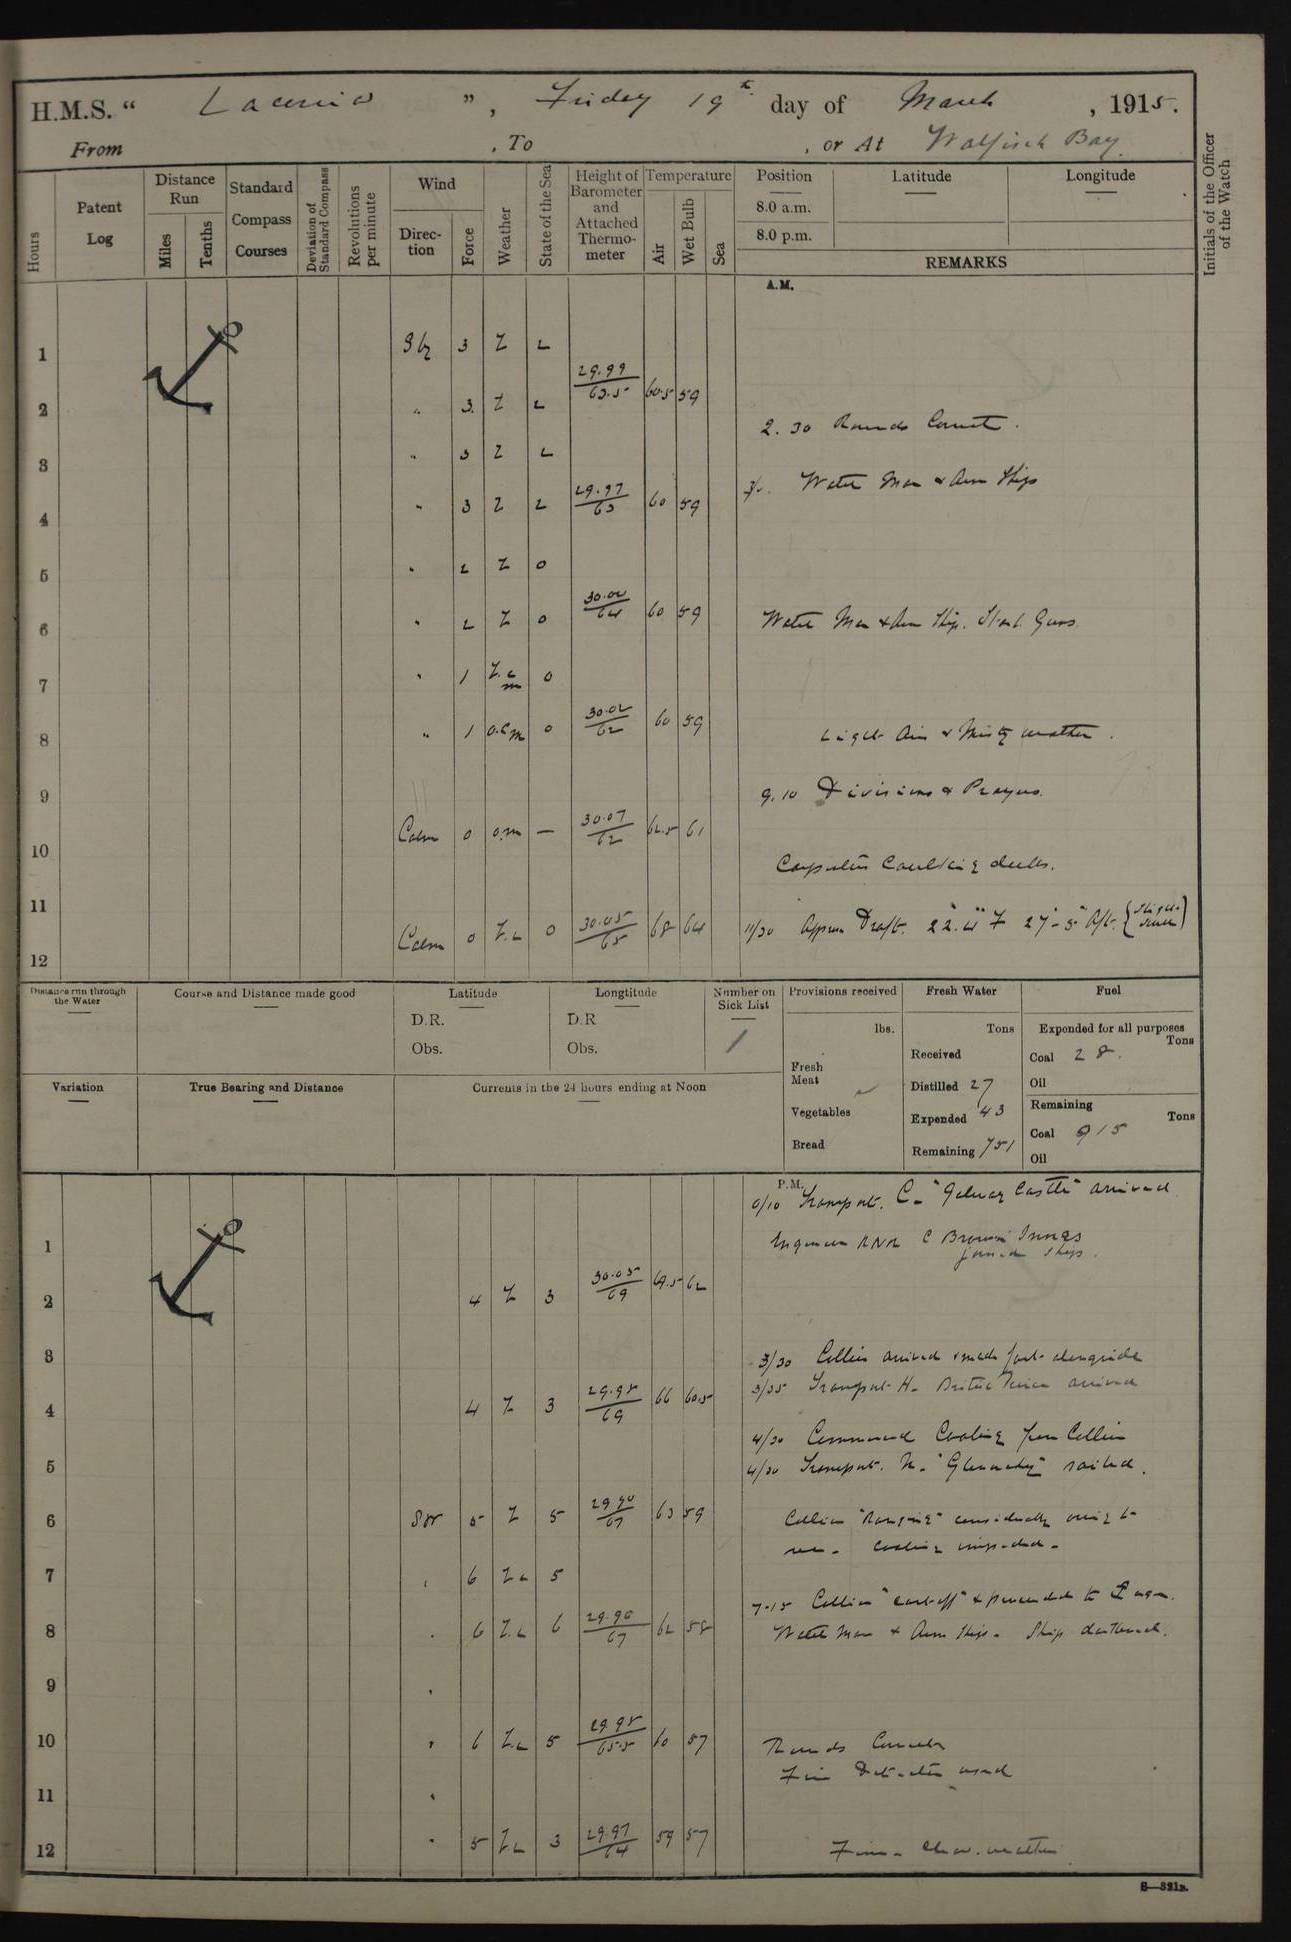 H.M.S. “ Laconia ”, Friday 19th day of March, 1915.
From , To , or At Walfisch Bay.
Hours
Patent Log
Distance Run
Miles
Tenths
Standard Compass Courses
Deviation of Standard Compass
Revolutions per minute
Wind
Direction
Force
Weather
State of the Sea
Height of Barometer and Attached Thermometer
Temperature
Air
Wet Bulb
Sea
Position
8.0 a.m.
8.0 p.m.
Latitude
Longitude
REMARKS
Initials of the Officer of the Watch
A.M.
1 3 Z 2
2 " 3 Z 2 29.99/63.5 60.5 59
2.30 Rounds Correct.
3 " 3 Z 2
4 " 3 Z 2 29.97/63 60 59
Water Man & Arm Ship
5 " 2 Z 0
6 " 2 Z 0 30.00/64 60 59
Water Man & Arm Ship.
7 " 1 Z.c m 0
8 " 1 o.c m 0 30.02/62 60 59
Light Airs & Misty weather.
9
9.10 Divisions & Prayers.
10 Calm 0 o.m — 30.07/62 62.5 61
Carpenters Caulking decks.
11
12 Calm 0 Z.c 0 30.05/65 68 64
11/30 Approx Draft. 22'.4" F 27'-5" Aft.
Distance run through the Water
Course and Distance made good
Latitude
D.R.
Obs.
Longtitude
D.R
Obs.
Number on Sick List
1
Provisions received
lbs.
Fresh Meat
Vegetables
Bread
Fresh Water
Tons
Received
Distilled 27
Expended 43
Remaining 751
Fuel
Expended for all purposes
Tons
Coal 28.
Oil
Remaining
Tons
Coal 915
Oil
Variation
True Bearing and Distance
Currents in the 24 hours ending at Noon
P.M.
0/10 Transport. C- "Galway Castle" arrived
Engineer RNR C Brown Innes
joined ship.
1
2 4 Z 3 30.05/69 69.5 62
3
3/30 Collier arrived & made fast alongside
3/35 Transport H- British Prince arrived
4 4 Z 3 29.98/69 66 60.5
4/30 Commenced Coaling from Collier
4/30 Transport. sailed.
5
6 SW 5 Z 5 29.90/67 63 59
Collier "Ranging" considerably owing to
sea - Coaling impeded -
7 " 6 Z c 5
7-15 Collier "cast off" & proceeded to
8 " 6 Z.c 6 29.90/67 62 58
Water Man & Arm Ship - Ship darkened.
9 "
10 " 6 Z.c 5 29.98/65.5 60 57
Rounds Correct
Fire Detector used
11 "
12 " 5 Z c 3 29.97/64 59 57
Fine - Clear. weather
S—321B.